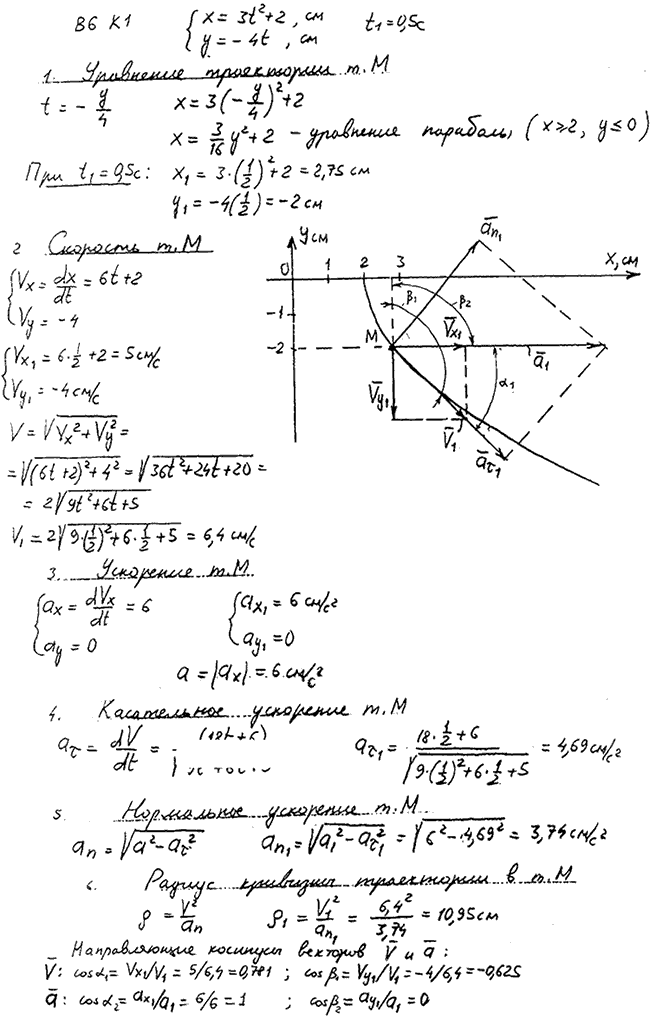 В6 К1 { x = 3t²+2 , см t₁=0,5с
{ y = -4t , см
1. Уравнение траектории т.М
t = - y/4 x = 3(-y/4)²+2
x = 3/16 y²+2 - уравнение парабалы, (x≥2, y≤0)
При t₁=0,5с: x₁ = 3·(1/2)²+2 = 2,75 см
y₁ = -4(1/2) = -2 см
2 Скорость т.М
{ Vx = dx/dt = 6t+2
{ Vy = -4
{ Vx₁ = 6·1/2+2 = 5 см/с
{ Vy₁ = -4 см/с
V = √(Vx²+Vy²) =
= √((6t+2)²+4²) = √(36t²+24t+20) =
= 2√(9t²+6t+5)
V₁ = 2√(9·(1/2)²+6·1/2+5) = 6,4 см/с
y см
x, см
0 1 2 3
-1
-2
M
ā n₁
β₁
β₂
V̄x₁
ā₁
α₁
V̄y₁
V̄₁
ā τ₁
3. Ускорение т.М
{ ax = dVx/dt = 6 { ax₁ = 6 см/с²
{ ay = 0 { ay₁ = 0
a = |ax| = 6 см/с²
4. Касательное ускорение т.М
aτ = dV/dt = aτ₁ = (18·1/2+6)/√(9·(1/2)²+6·1/2+5) = 4,69 см/с²
5. Нормальное ускорение т.М
an = √(a²-aτ²) an₁ = √(a₁²-aτ₁²) = √(6²-4,69²) = 3,74 см/с²
6. Радиус кривизны траектории в т.М
ρ = V²/an ρ₁ = V₁²/an₁ = 6,4²/3,74 = 10,95 см
Направляющие косинусы векторов V̄ и ā :
V̄: cosα₁ = Vx₁/V₁ = 5/6,4 = 0,781 ; cosβ₁ = Vy₁/V₁ = -4/6,4 = -0,625
ā: cosα₂ = ax₁/a₁ = 6/6 = 1 ; cosβ₂ = ay₁/a₁ = 0